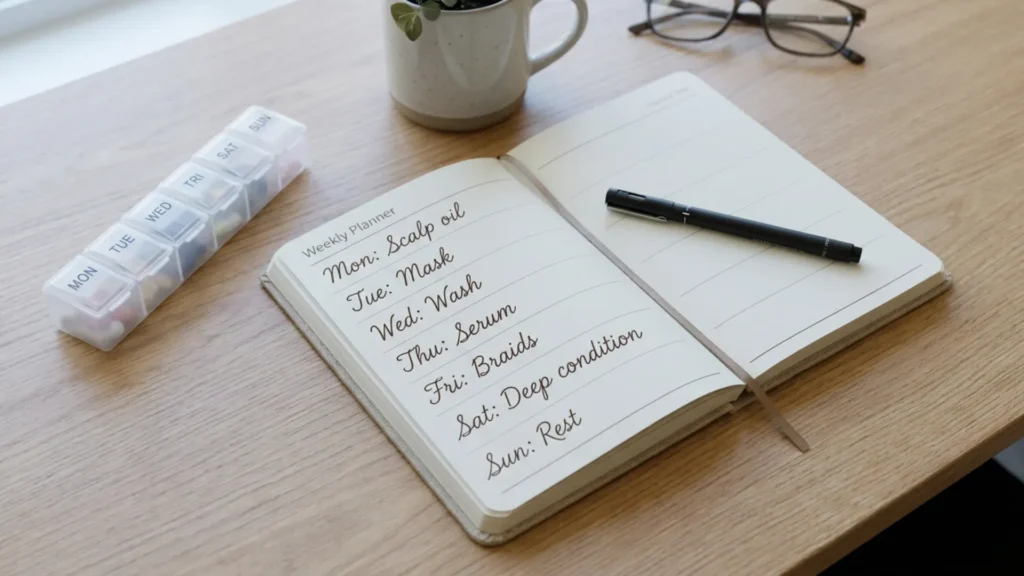 MON
TUE
WED
TRI
SAT
SUN
Weekly Planner
Mon: Scalp oil
Tue: Mask
Wed: Wash
Thu: Serum
Fri: Braids
Sat: Deep condition
Sun: Rest